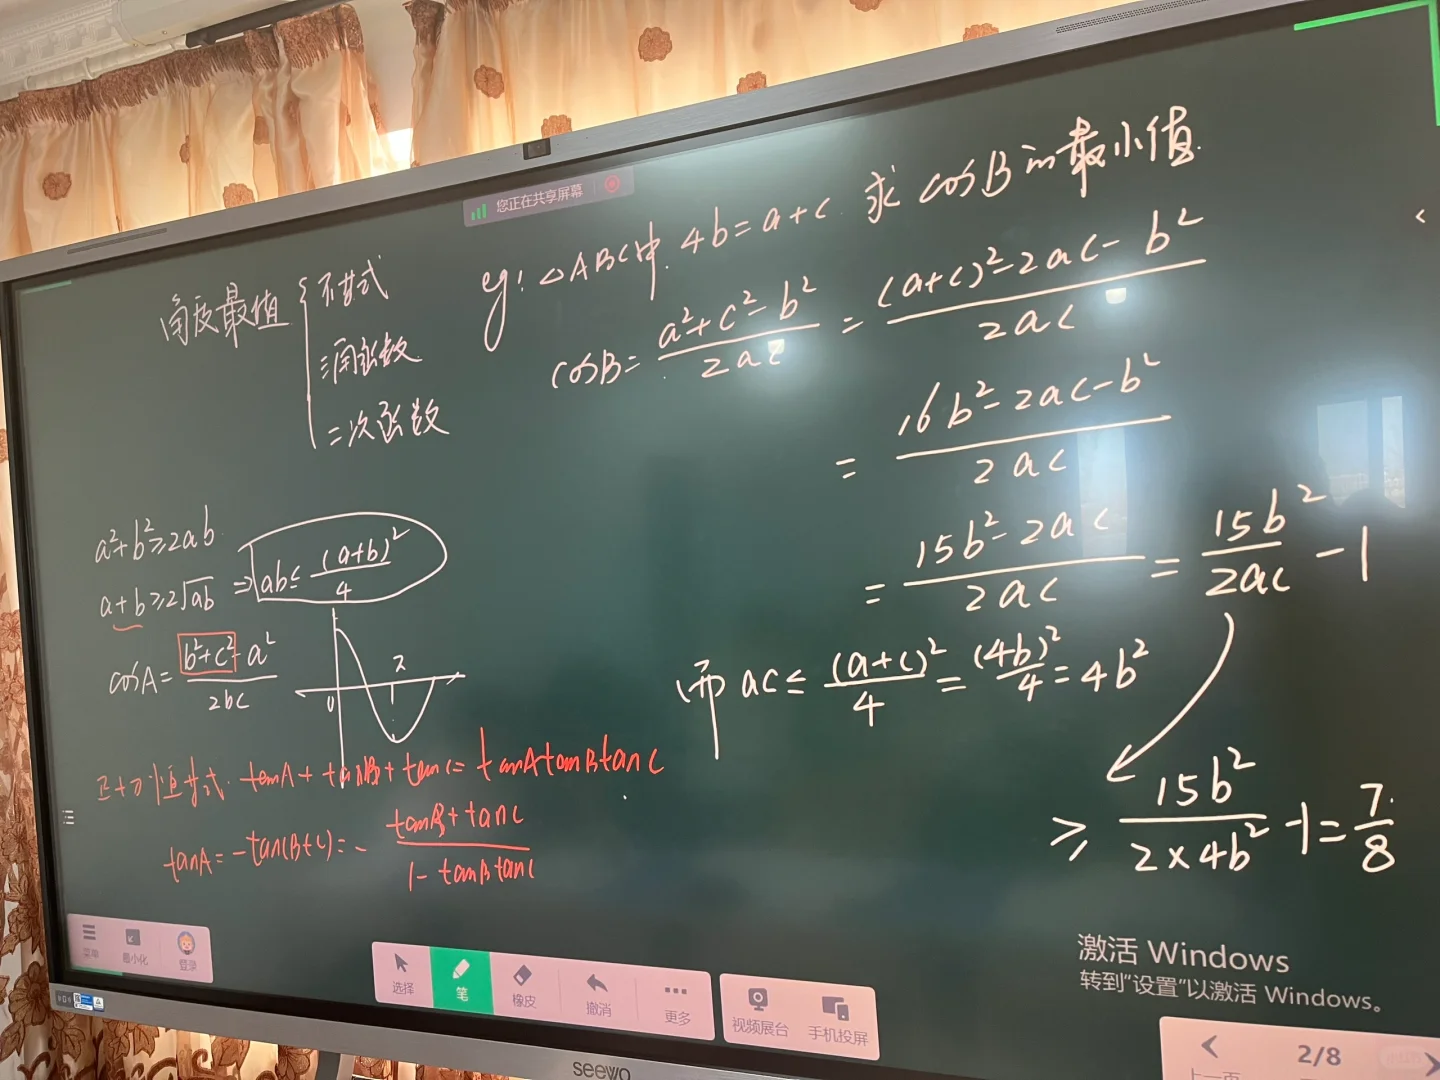 您正在共享屏幕
eg: △ABC中. 4b=a+c. 求 cosB的最小值.
角度最值 { 不等式
三角函数
二次函数
cosB= (a²+c²-b²)/(2ac) = ((a+c)²-2ac-b²)/(2ac)
= (16b²-2ac-b²)/(2ac)
= (15b²-2ac)/(2ac) = 15b²/(2ac) -1
而 ac≤ (a+c)²/4 = (4b)²/4 = 4b²
≥ 15b²/(2×4b²) -1= 7/8
a²+b²≥2ab
a+b≥2√ab ⇒ ab≤ (a+b)²/4
cosA= (b²+c²-a²)/(2bc)
0 π
正切恒等式. tanA+tanB+tanC=tanAtanBtanC
tanA=-tan(B+C)=- (tanB+tanC)/(1-tanBtanC)
菜单 最小化 登录
选择 笔 橡皮 撤消 更多
视频展台 手机投屏
激活 Windows
转到“设置”以激活 Windows。
2/8
上一页
seewo